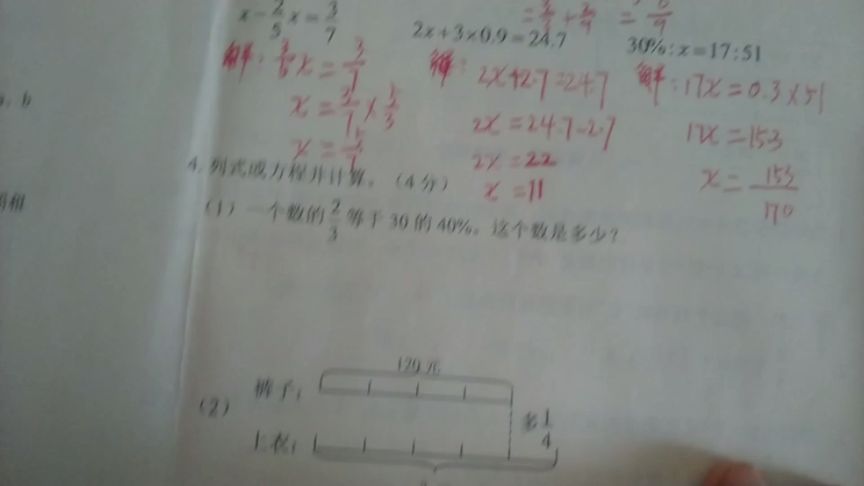 x-2/5x=3/7
2x+3×0.9=24.7
30%:x=17:51
解:3/5x=3/7
x=3/7×5/3
x=5/7
解:2x+2.7=24.7
2x=24.7-2.7
2x=22
x=11
解:17x=0.3×51
17x=153
x=153/170
4.列式或方程并计算。(4分)
(1)一个数的2/3等于30的40%。这个数是多少?
120元
(2)
裤子:
多1/4
上衣: